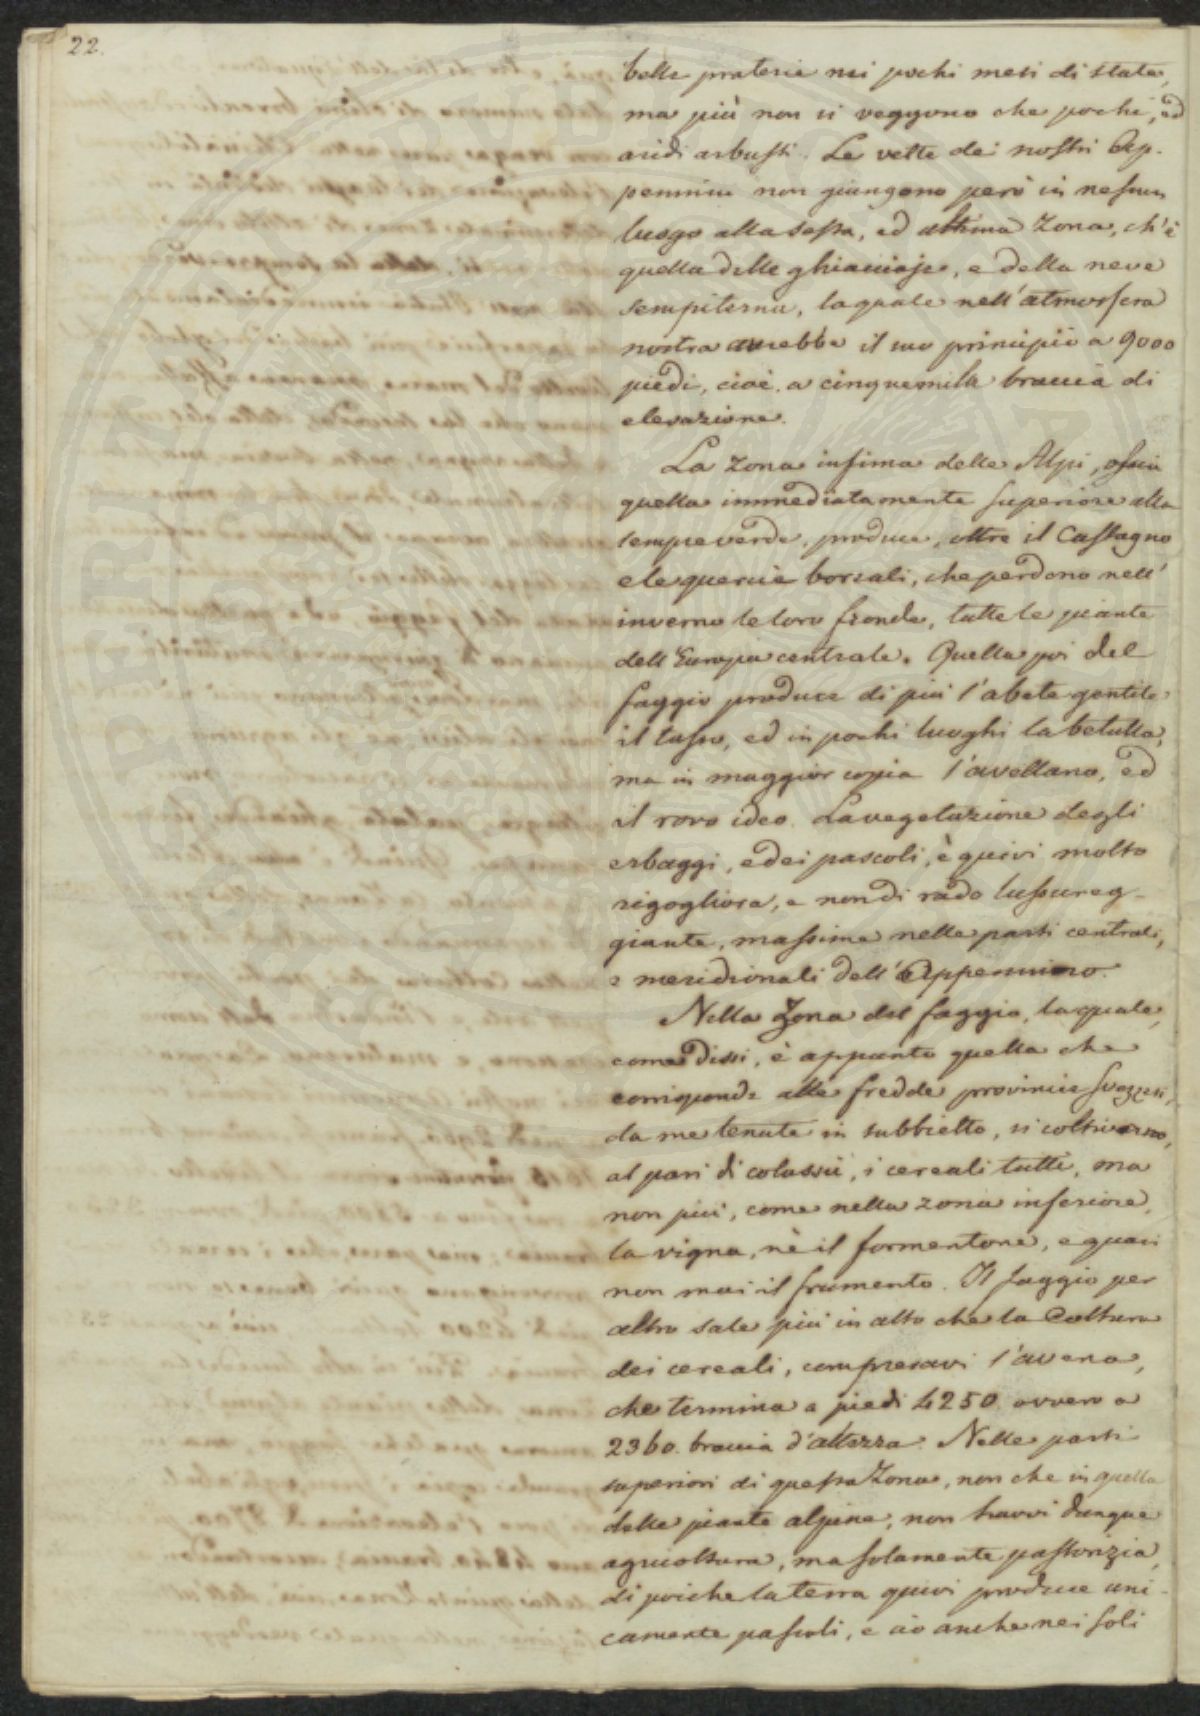 22.
belle praterie nei pochi mesi di state,
ma più non si veggono che pochi, ed
aridi arbusti. Le vette dei nostri Ap-
pennini non giungono però in nessun
luogo alla sesta, ed ultima Zona, ch'è
quella delle ghiacciaje, e della neve
sempiterna, la quale nell'atmosfera
nostra avrebbe il suo principio a 9000
piedi, cioè, a cinquemila braccia di
elevazione.
La zona infima delle Alpi, ossia
quella immediatamente superiore alla
sempreverde, produce, oltre il Castagno
e le quercie boreali, che perdono nell'
inverno le loro fronde, tutte le piante
dell'Europa centrale. Quella poi del
faggio produce di più l'abete gentile
il tasso, ed in pochi luoghi la betulla,
ma in maggior copia l'avellano, ed
il rovo ideo. La vegetazione degli
erbaggi, e dei pascoli, è quivi molto
rigogliosa, e non di rado lussureg-
giante, massime nelle parti centrali,
e meridionali dell'Appennino.
Nella Zona del faggio, la quale,
come dissi, è appunto quella che
corrisponde alle fredde provincie Svezzesi,
da me tenute in subbietto, si coltivano,
al pari di colassù, i cereali tutti, ma
non più, come nella zona inferiore,
la vigna, nè il formentone, e quasi
non mai il frumento. Il faggio per
altro sale più in alto che la Coltura
dei cereali, compresavi l'avena,
che termina a piedi 4250. ovvero a
2360. braccia d'altezza. Nelle parti
superiori di questa Zona, non che in quella
delle piante alpine, non havvi dunque
agricoltura, ma solamente pastorizia,
di poichè la terra quivi produce uni-
camente pascoli, e ciò anche nei soli